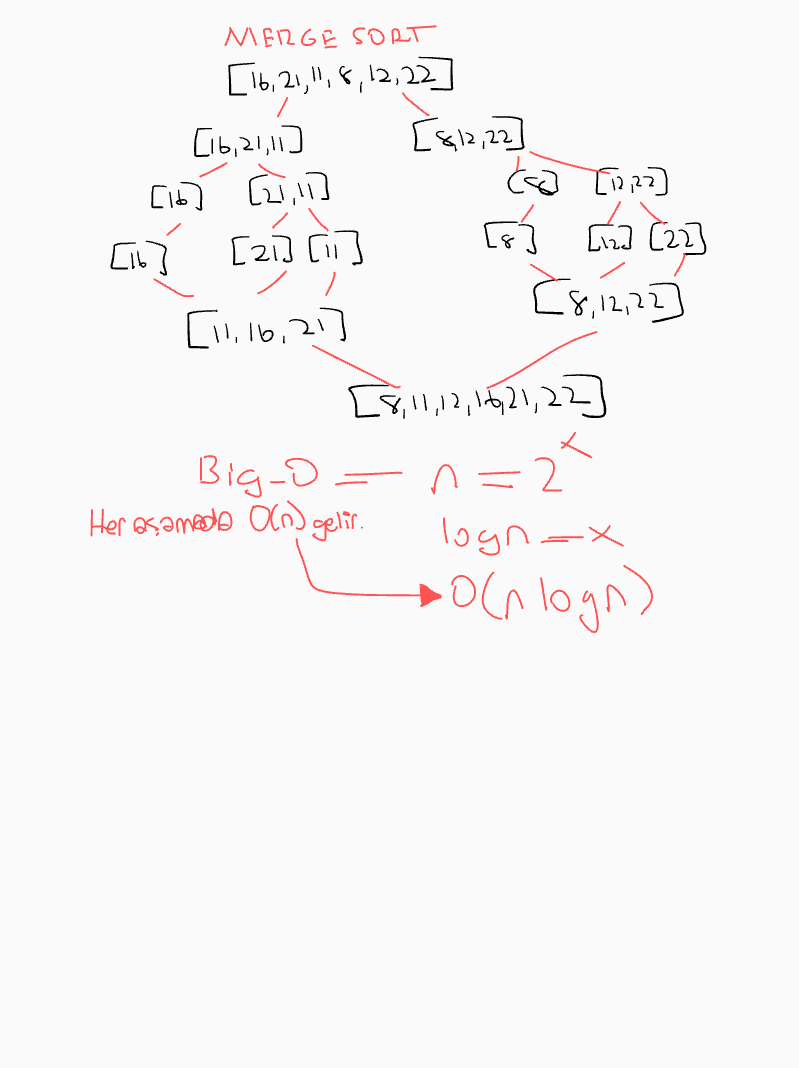 MERGE SORT
[16,21,11,8,12,22]
[16,21,11] [8,12,22]
[16] [21,11] [8] [12,22]
[16] [21] [11] [8] [12] [22]
[11,16,21] [8,12,22]
[8,11,12,16,21,22]
Big-O = n = 2^x
Her aşamada O(n) gelir. logn = x
O(n logn)